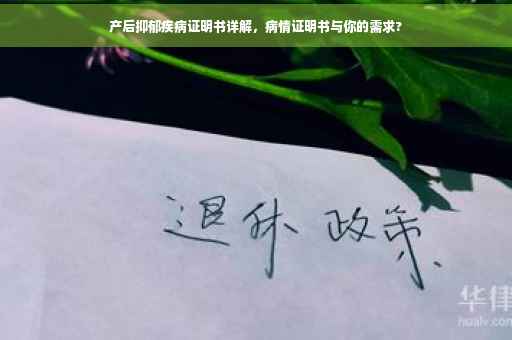 产后抑郁疾病证明书详解，病情证明书与你的需求？
退休 政策
华律
hualv.com